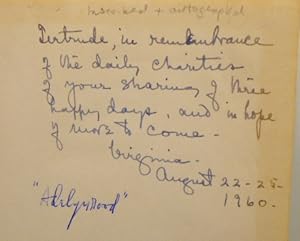 Inscribed + autographed
Gertrude, in remembrance
of the daily charities
of your sharing of three
happy days, and in hope
of more to come -
Virginia.
August 22-25-
1960.